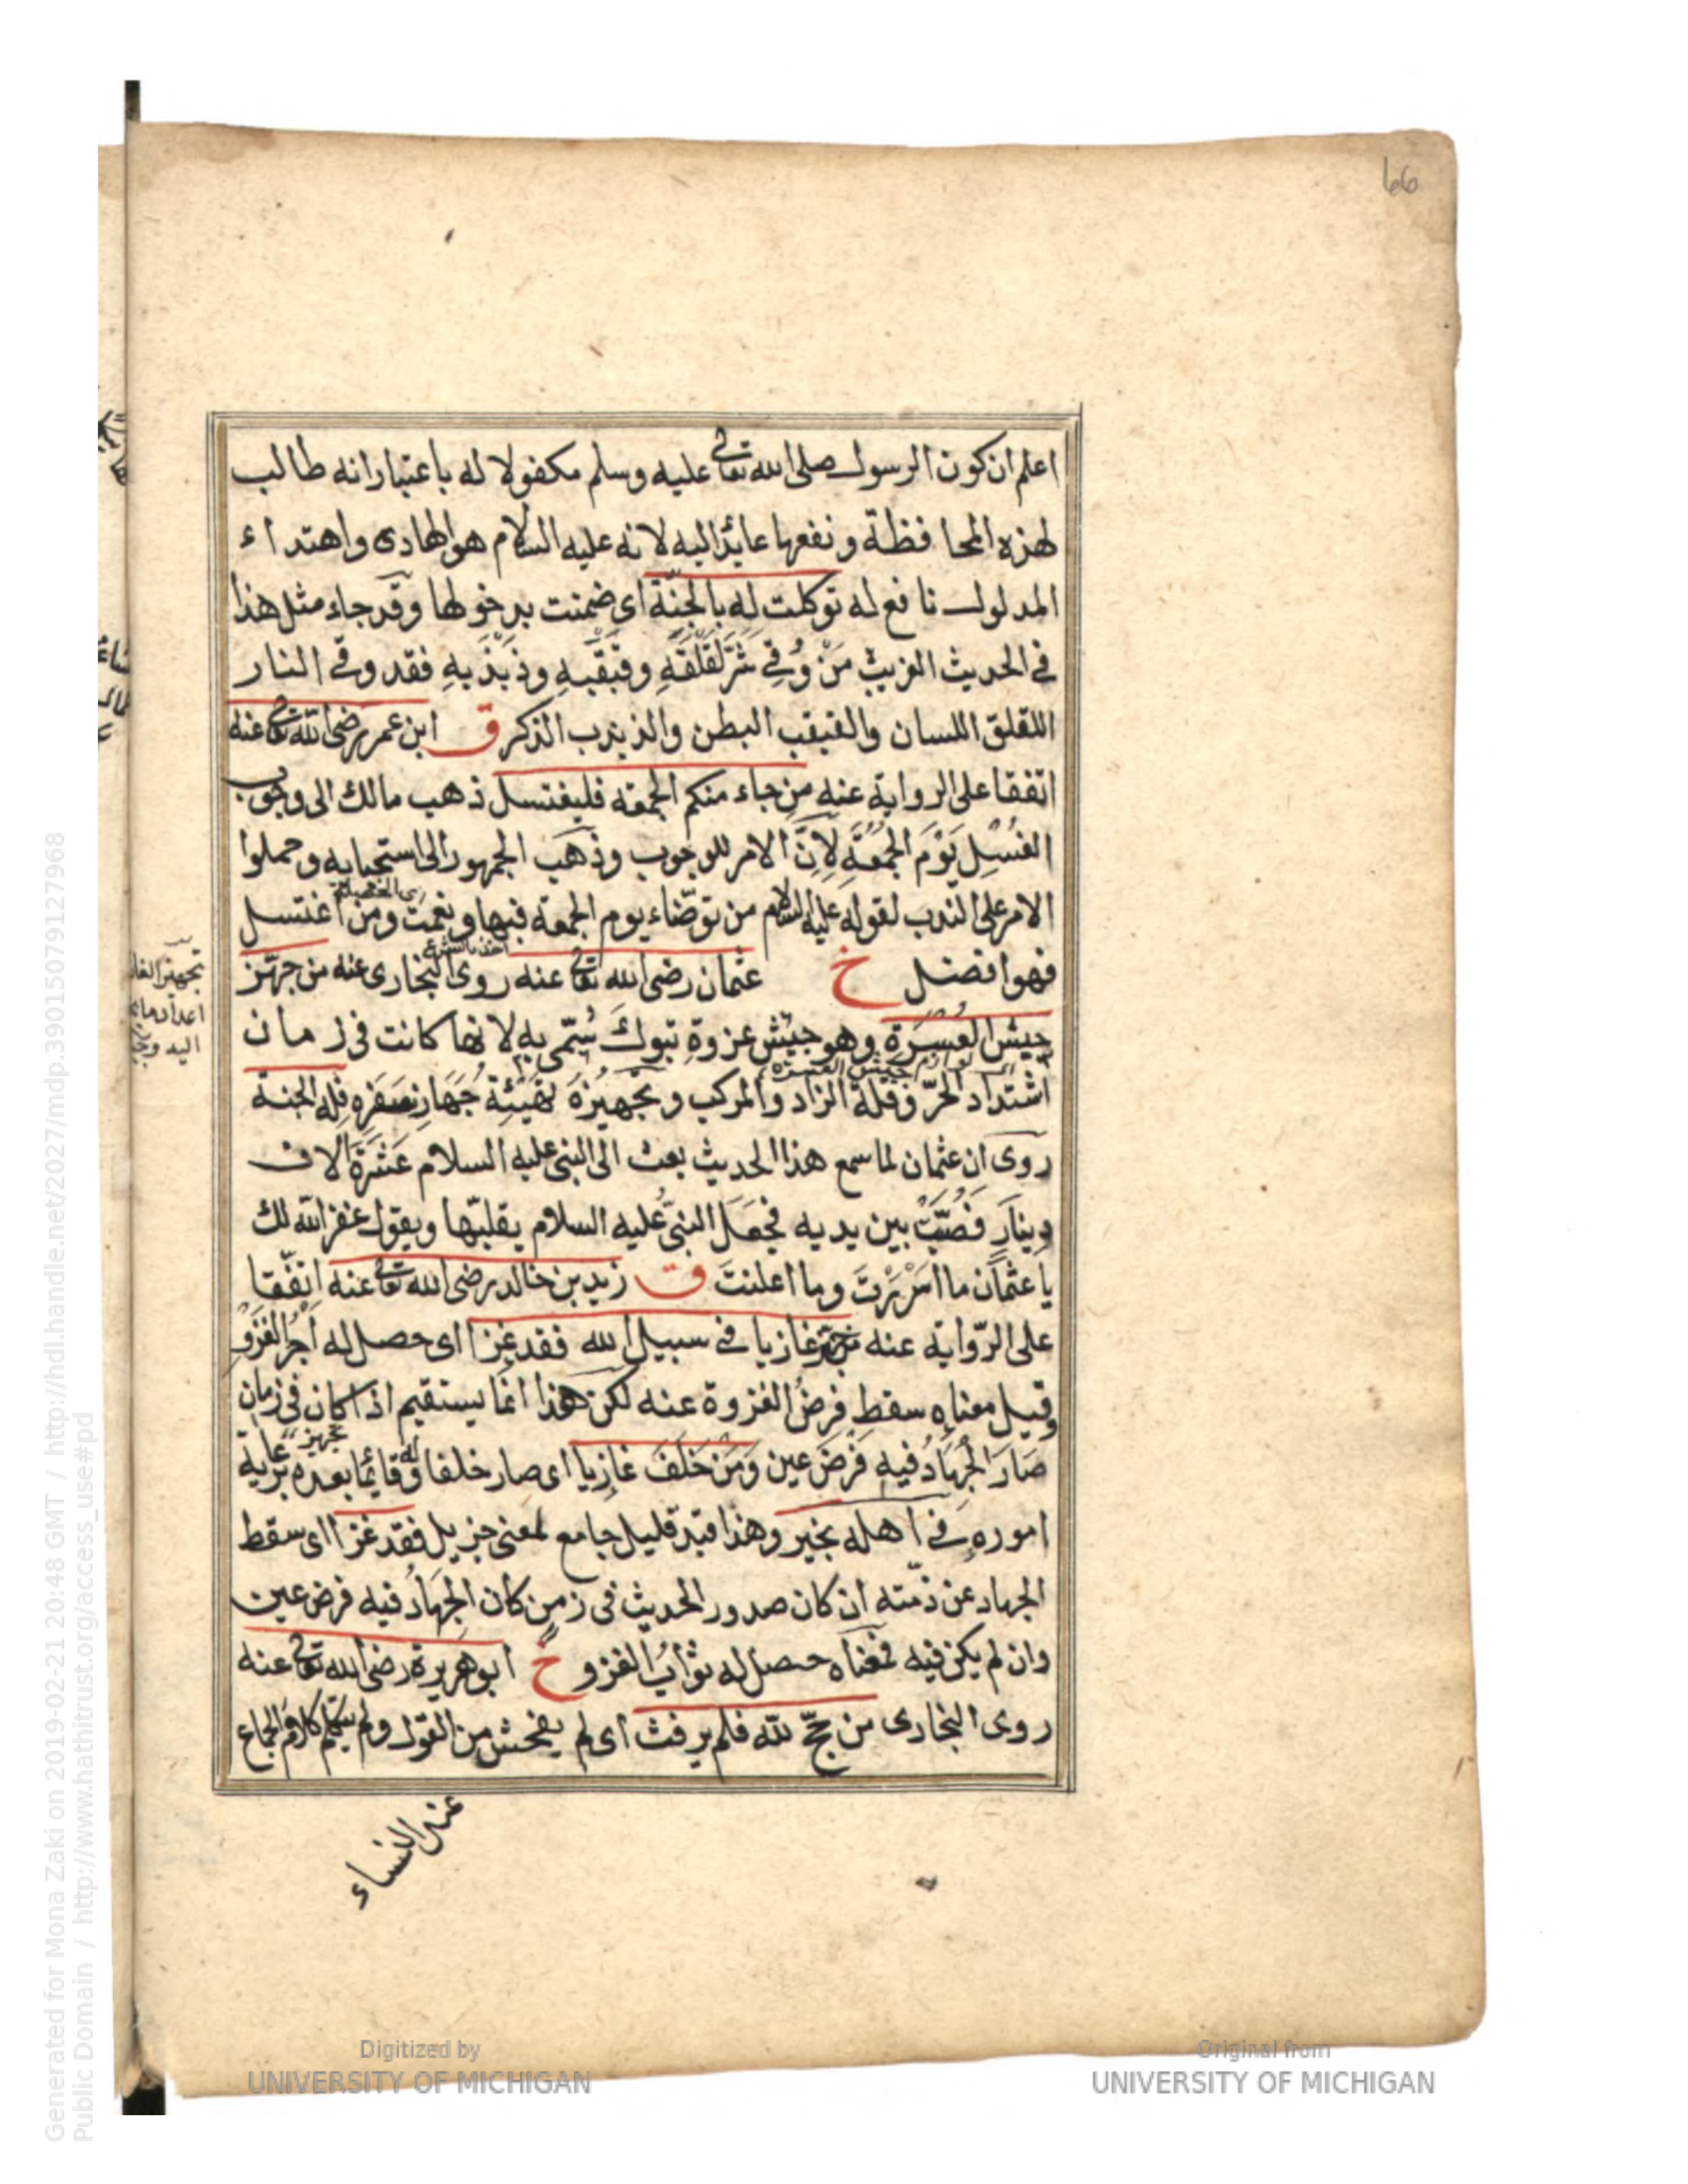 66
اعلم ان كون الرسول صلى الله تعالى عليه وسلم مكفولا له باعتبار انه طالب
لهذه المحافظة ونفعها عائد اليه لانه عليه السلام هو الهادى واهتداء
المدلول نافع له توكلت له بالجنة اى ضمنت بدخولها وقد جاء مثل هذا
فى الحديث الغريب مَنْ وُقِىَ شَرَّ لَقْلَقِهِ وقَبْقَبِهِ وذَبْذَبِهِ فقد وقى النار
اللقلق اللسان والقبقب البطن والذبذب الذكر ق ابن عمر رضى الله تعالى عنه
اتفقا على الرواية عنه من جاء منكم الجمعة فليغتسل ذهب مالك الى وجوب
الغُسْلِ يَوْمَ الجُمُعَةِ لِاَنَّ الامر للوجوب وذهَب الجمهور الى استحبابه وحملوا
الامر على الندب لقوله عليه السلام من توضاء يوم الجمعة فبها ونعمت ومن اغتسل
فهو افضل خ عثمان رضى الله تعالى عنه روى البخارى عنه من جهّز
جيش العُسرَةِ وهو جيش غزوةِ تبوكَ سُمّى بِهِ لانها كانت فى زمان
اشتداد الحرّ وقلة الزاد والمركب وتجهيزُهُ تَهْيِئَةُ جَهَازِ سَفَرِهِ فله الجنة
جيش العسرة
روى ان عثمان لما سمع هذا الحديث بعث الى النبى عليه السلام عَشَرَةَ الاف
دينار فَصُبَّتْ بين يديه فجعَلَ النبىُّ عليه السلام يقلبّها ويقول غفر الله لك
يا عثمان ما اَسْرَرْتَ وما اعلنتَ ق زيد بن خالد رضى الله تعالى عنه اتفّقا
على الرّواية عنه من جهّز غازيا فى سبيل الله فقد غزا اى حصل له اَجْرُ الغَزْوِ
وقيل معناه سقط فرضُ الغزوة عنه لكن هذا انما يستقيم اذا كان فى زمان
صَارَ الجِهَادُ فيهِ فَرْضَ عين وَمَنْ خَلَفَ غازِيا اى صار خلفا له وقائما بعده برعاية
اموره فى اهله بخير وهذا قيد قليل جامع لمعنى جزيل فقد غزا اى سقط
الجهاد عن ذمّته ان كان صدور الحديث فى زمن كان الجِهَادُ فيه فرض عين
وان لم يكن فيه فمعناه حصل له ثوابُ الغزو خ ابو هريرة رضى الله تعالى عنه
روى البخارى من حجّ لله فلم يرفث اى لم يفحش من القول ولم يتكلم كلام الجماع
عند النساء
Digitized by
UNIVERSITY OF MICHIGAN
Original from
UNIVERSITY OF MICHIGAN
Generated for Mona Zaki on 2019-02-21 20:48 GMT / http://hdl.handle.net/2027/mdp.39015079127968
Public Domain / http://www.hathitrust.org/access_use#pd